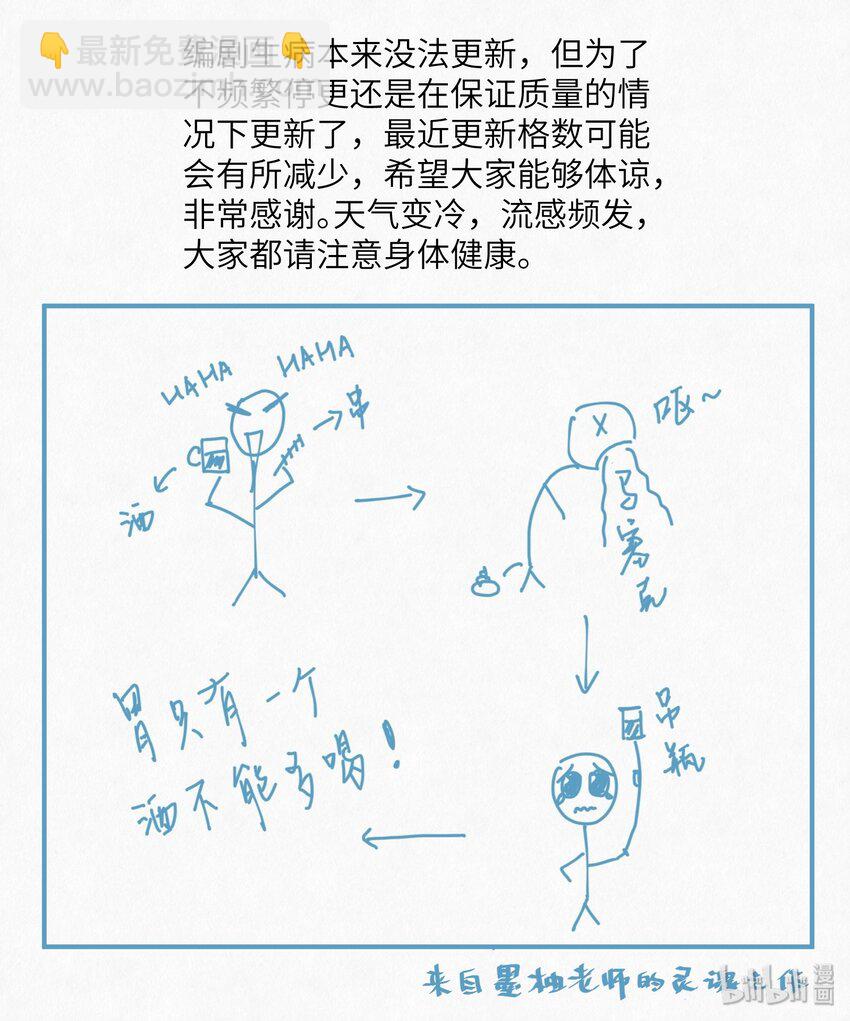 👇最新免费漫画👇
www.baozimh.com
编剧生病本来没法更新，但为了
不频繁停更还是在保证质量的情
况下更新了，最近更新格数可能
会有所减少，希望大家能够体谅，
非常感谢。天气变冷，流感频发，
大家都请注意身体健康。
HAHA
HAHA
串
酒
呕~
马赛克
吊瓶
胃只有一个
酒不能多喝！
来自墨柚老师的灵魂
bilibili漫画